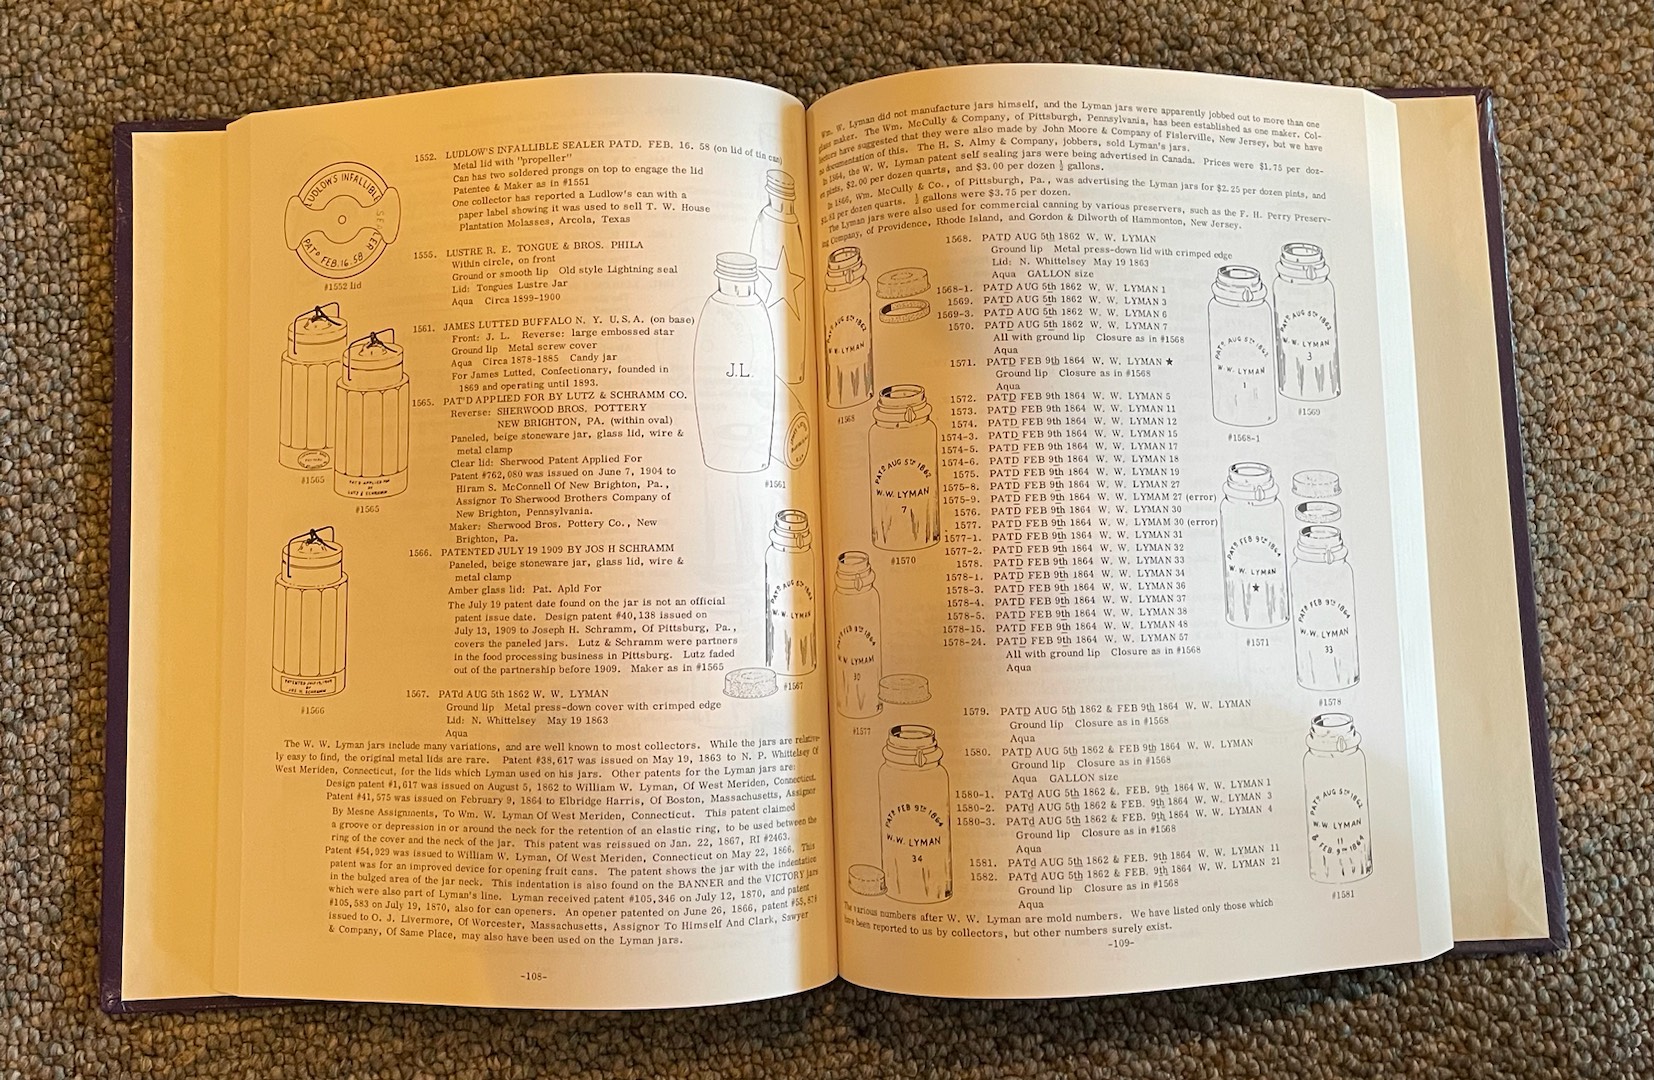 1552. LUDLOW'S INFALLIBLE SEALER PATD. FEB. 16. 58 (on lid of tin can)
Metal lid with "propeller"
Can has two soldered prongs on top to engage the lid
Patentee & Maker as in #1551
One collector has reported a Ludlow's can with a
paper label showing it was used to sell T. W. House
Plantation Molasses, Arcola, Texas
LUDLOW'S INFALLIBLE
SEALER
PATD FEB. 16. 58
#1552 lid
1555. LUSTRE R. E. TONGUE & BROS. PHILA
Within circle, on front
Ground or smooth lip Old style Lightning seal
Lid: Tongues Lustre Jar
Aqua Circa 1899-1900
1561. JAMES LUTTED BUFFALO N. Y. U.S.A. (on base)
Front: J. L. Reverse: large embossed star
Ground lip Metal screw cover
Aqua Circa 1878-1885 Candy jar
For James Lutted, Confectionary, founded in
1869 and operating until 1893.
J.L.
#1561
1565. PAT'D APPLIED FOR BY LUTZ & SCHRAMM CO.
Reverse: SHERWOOD BROS. POTTERY
NEW BRIGHTON, PA. (within oval)
Paneled, beige stoneware jar, glass lid, wire &
metal clamp
Clear lid: Sherwood Patent Applied For
Patent #762,080 was issued on June 7, 1904 to
Hiram S. McConnell Of New Brighton, Pa.,
Assignor To Sherwood Brothers Company of
New Brighton, Pennsylvania.
Maker: Sherwood Bros. Pottery Co., New
Brighton, Pa.
#1565
PAT'D APPLIED FOR
BY
LUTZ & SCHRAMM
#1565
1566. PATENTED JULY 19 1909 BY JOS H SCHRAMM
Paneled, beige stoneware jar, glass lid, wire &
metal clamp
Amber glass lid: Pat. Apld For
The July 19 patent date found on the jar is not an official
patent issue date. Design patent #40,138 issued on
July 13, 1909 to Joseph H. Schramm, Of Pittsburg, Pa.,
covers the paneled jars. Lutz & Schramm were partners
in the food processing business in Pittsburg. Lutz faded
out of the partnership before 1909. Maker as in #1565
PATENTED JULY 19,1909
BY
JOS H. SCHRAMM
#1566
PATD AUG 5TH 1862
W.W. LYMAN
#1567
1567. PATd AUG 5th 1862 W. W. LYMAN
Ground lip Metal press-down cover with crimped edge
Lid: N. Whittelsey May 19 1863
Aqua
The W. W. Lyman jars include many variations, and are well known to most collectors. While the jars are relative-
ly easy to find, the original metal lids are rare. Patent #38,617 was issued on May 19, 1863 to N. P. Whittelsey Of
West Meriden, Connecticut, for the lids which Lyman used on his jars. Other patents for the Lyman jars are:
Design patent #1,617 was issued on August 5, 1862 to William W. Lyman, Of West Meriden, Connecticut.
Patent #41,575 was issued on February 9, 1864 to Elbridge Harris, Of Boston, Massachusetts, Assignor
By Mesne Assignments, To Wm. W. Lyman Of West Meriden, Connecticut. This patent claimed
a groove or depression in or around the neck for the retention of an elastic ring, to be used between the
ring of the cover and the neck of the jar. This patent was reissued on Jan. 22, 1867, RI #2463.
Patent #54,929 was issued to William W. Lyman, Of West Meriden, Connecticut on May 22, 1866. This
patent was for an improved device for opening fruit cans. The patent shows the jar with the indentation
in the bulged area of the jar neck. This indentation is also found on the BANNER and the VICTORY jars
which were also part of Lyman's line. Lyman received patent #105,346 on July 12, 1870, and patent
#105,583 on July 19, 1870, also for can openers. An opener patented on June 26, 1866, patent #55,878
issued to O. J. Livermore, Of Worcester, Massachusetts, Assignor To Himself And Clark, Sawyer
& Company, Of Same Place, may also have been used on the Lyman jars.
-108-
Wm. W. Lyman did not manufacture jars himself, and the Lyman jars were apparently jobbed out to more than one
glass maker. The Wm. McCully & Company, of Pittsburgh, Pennsylvania, has been established as one maker. Col-
lectors have suggested that they were also made by John Moore & Company of Fislerville, New Jersey, but we have
no documentation of this. The H. S. Almy & Company, jobbers, sold Lyman's jars.
In 1864, the W. W. Lyman patent self sealing jars were being advertised in Canada. Prices were $1.75 per doz-
en pints, $2.00 per dozen quarts, and $3.00 per dozen ½ gallons.
In 1866, Wm. McCully & Co., of Pittsburgh, Pa., was advertising the Lyman jars for $2.25 per dozen pints, and
per dozen quarts. ½ gallons were $3.75 per dozen.
The Lyman jars were also used for commercial canning by various preservers, such as the F. H. Perry Preserv-
ing Company, of Providence, Rhode Island, and Gordon & Dilworth of Hammonton, New Jersey.
1568. PATD AUG 5th 1862 W. W. LYMAN
Ground lip Metal press-down lid with crimped edge
Lid: N. Whittelsey May 19 1863
Aqua GALLON size
1568-1. PATD AUG 5th 1862 W. W. LYMAN 1
1569. PATD AUG 5th 1862 W. W. LYMAN 3
1569-3. PATD AUG 5th 1862 W. W. LYMAN 6
1570. PATD AUG 5th 1862 W. W. LYMAN 7
All with ground lip Closure as in #1568
Aqua
1571. PATD FEB 9th 1864 W. W. LYMAN ★
Ground lip Closure as in #1568
Aqua
1572. PATD FEB 9th 1864 W. W. LYMAN 5
1573. PATD FEB 9th 1864 W. W. LYMAN 11
1574. PATD FEB 9th 1864 W. W. LYMAN 12
1574-3. PATD FEB 9th 1864 W. W. LYMAN 15
1574-5. PATD FEB 9th 1864 W. W. LYMAN 17
1574-6. PATD FEB 9th 1864 W. W. LYMAN 18
1575. PATD FEB 9th 1864 W. W. LYMAN 19
1575-8. PATD FEB 9th 1864 W. W. LYMAN 27
1575-9. PATD FEB 9th 1864 W. W. LYMAM 27 (error)
1576. PATD FEB 9th 1864 W. W. LYMAN 30
1577. PATD FEB 9th 1864 W. W. LYMAM 30 (error)
1577-1. PATD FEB 9th 1864 W. W. LYMAN 31
1577-2. PATD FEB 9th 1864 W. W. LYMAN 32
1578. PATD FEB 9th 1864 W. W. LYMAN 33
1578-1. PATD FEB 9th 1864 W. W. LYMAN 34
1578-3. PATD FEB 9th 1864 W. W. LYMAN 36
1578-4. PATD FEB 9th 1864 W. W. LYMAN 37
1578-5. PATD FEB 9th 1864 W. W. LYMAN 38
1578-15. PATD FEB 9th 1864 W. W. LYMAN 48
1578-24. PATD FEB 9th 1864 W. W. LYMAN 57
All with ground lip Closure as in #1568
Aqua
1579. PATD AUG 5th 1862 & FEB 9th 1864 W. W. LYMAN
Ground lip Closure as in #1568
Aqua
1580. PATD AUG 5th 1862 & FEB 9th 1864 W. W. LYMAN
Ground lip Closure as in #1568
Aqua GALLON size
1580-1. PATd AUG 5th 1862 &. FEB. 9th 1864 W. W. LYMAN 1
1580-2. PATd AUG 5th 1862 & FEB. 9th 1864 W. W. LYMAN 3
1580-3. PATd AUG 5th 1862 & FEB. 9th 1864 W. W. LYMAN 4
Ground lip Closure as in #1568
Aqua
1581. PATd AUG 5th 1862 & FEB. 9th 1864 W. W. LYMAN 11
1582. PATd AUG 5th 1862 & FEB. 9th 1864 W. W. LYMAN 21
Ground lip Closure as in #1568
Aqua
PATD AUG 5TH 1862
W.W. LYMAN
#1568
PATD AUG 5TH 1862
W.W. LYMAN
7
#1570
PATD FEB 9TH 1864
W.W. LYMAM
30
#1577
PATD FEB 9TH 1864
W.W. LYMAN
34
PATD AUG 5TH 1862
W.W. LYMAN
1
#1568-1
PATD AUG 5TH 1862
W.W. LYMAN
3
#1569
PATD FEB 9TH 1864
W.W. LYMAN
★
#1571
PATD FEB 9TH 1864
W.W. LYMAN
33
#1578
PATD AUG 5TH 1862
W.W. LYMAN
11
& FEB. 9TH 1864
#1581
The various numbers after W. W. Lyman are mold numbers. We have listed only those which
have been reported to us by collectors, but other numbers surely exist.
-109-